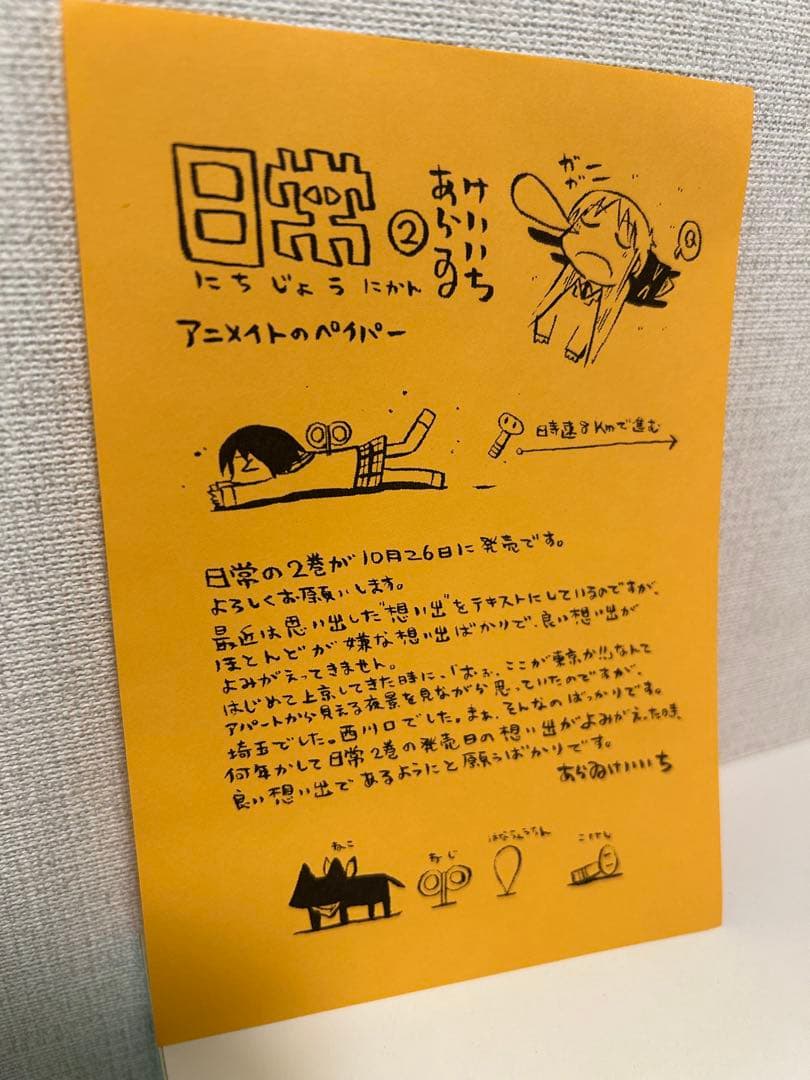 日常②
あらゐ
けいいち
にちじょう にかん
アニメイトのペイパー
ガガーニ
時速8Kmで進む
日常の2巻が10月26日に発売です。
よろしくお願いします。
最近は思い出した"想い出"をテキストにしているのですが、
ほとんどが嫌な想い出ばかりで、良い想い出が
よみがえってきません。
はじめて上京してきた時に、「おぉ、ここが東京か!!」なんて
アパートから見える夜景を見ながら思っていたのですが、
埼玉でした。西川口でした。まぁ、そんなのばっかりです。
何年かして日常2巻の発売日の想い出がよみがえった時、
良い想い出であるようにと願うばかりです。
あらゐけいいち
ねこ
ねじ
はなちょうちん
こけし